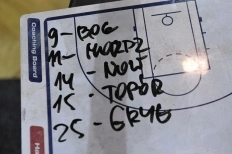 Coaching Board
9 - BOG
11 - MORDZ
14 - NOW
15 - TOPÓR
25 - GRUG
Ha